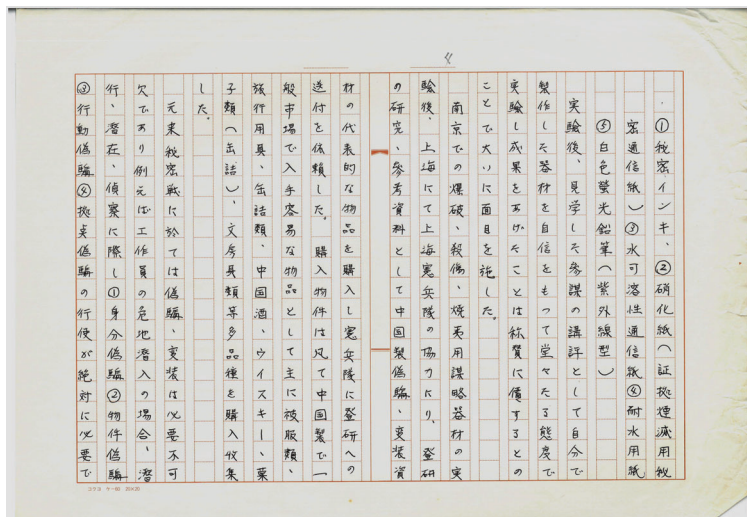 八
・①秘密インキ、②硝化紙(証拠煙滅用秘
密通信紙)③水可溶性通信紙④耐水用紙
⑤白色螢光鉛筆(紫外線型)
実驗後、見学した参謀の講評として自分で
製作した器材を自信をもつて堂々たる態度で
実験し成果をあげたことは称賛に價するとの
ことで大いに面目を施した。
南京での爆破、殺傷、焼夷用謀略器材の実
驗後、上海にて上海憲兵隊の協力により、登研
の研究、參考資料として中国製偽騙、変装資
材の代表的な物品を購入し憲兵隊に登研への
送付を依頼した。購入物件は凡て中国製で一
般市場で入手容易な物品として主に被服類、
旅行用具、缶詰類、中国酒、ウイスキー、菓
子類(缶詰)、文房具類等多品種を購入収集
した。
元来秘密戦に於ては偽騙、変装は必要不可
欠であり例えば工作員の危地潜入の場合、潜
行、潜在、偵察に際し①身分偽騙②物件偽騙
③行動偽騙④拠点偽騙の行使が絶対に必要で
コクヨ ケ-60 20×20